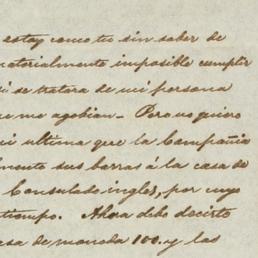 estoy como tu sin saber de
materialmente imposible cumplir
si se tratara de mi persona
que me agobian - Pero no quiero
mi ultima que la Compañia
lmente sus barras á la casa de
Consulado ingles, por cuyo
tiempo. Ahora debo decirte
casa de moneda 100. y las